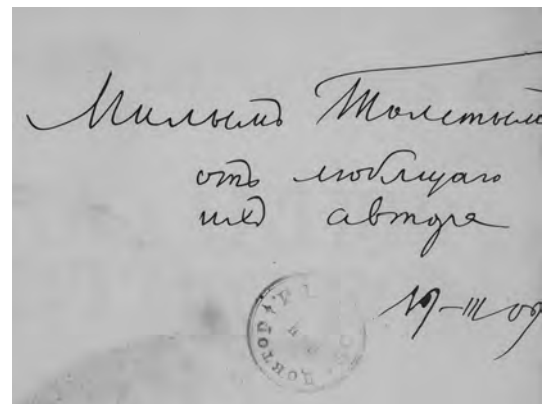 Милымъ Толстымъ
отъ любящаго
ихъ автора
19-III 09